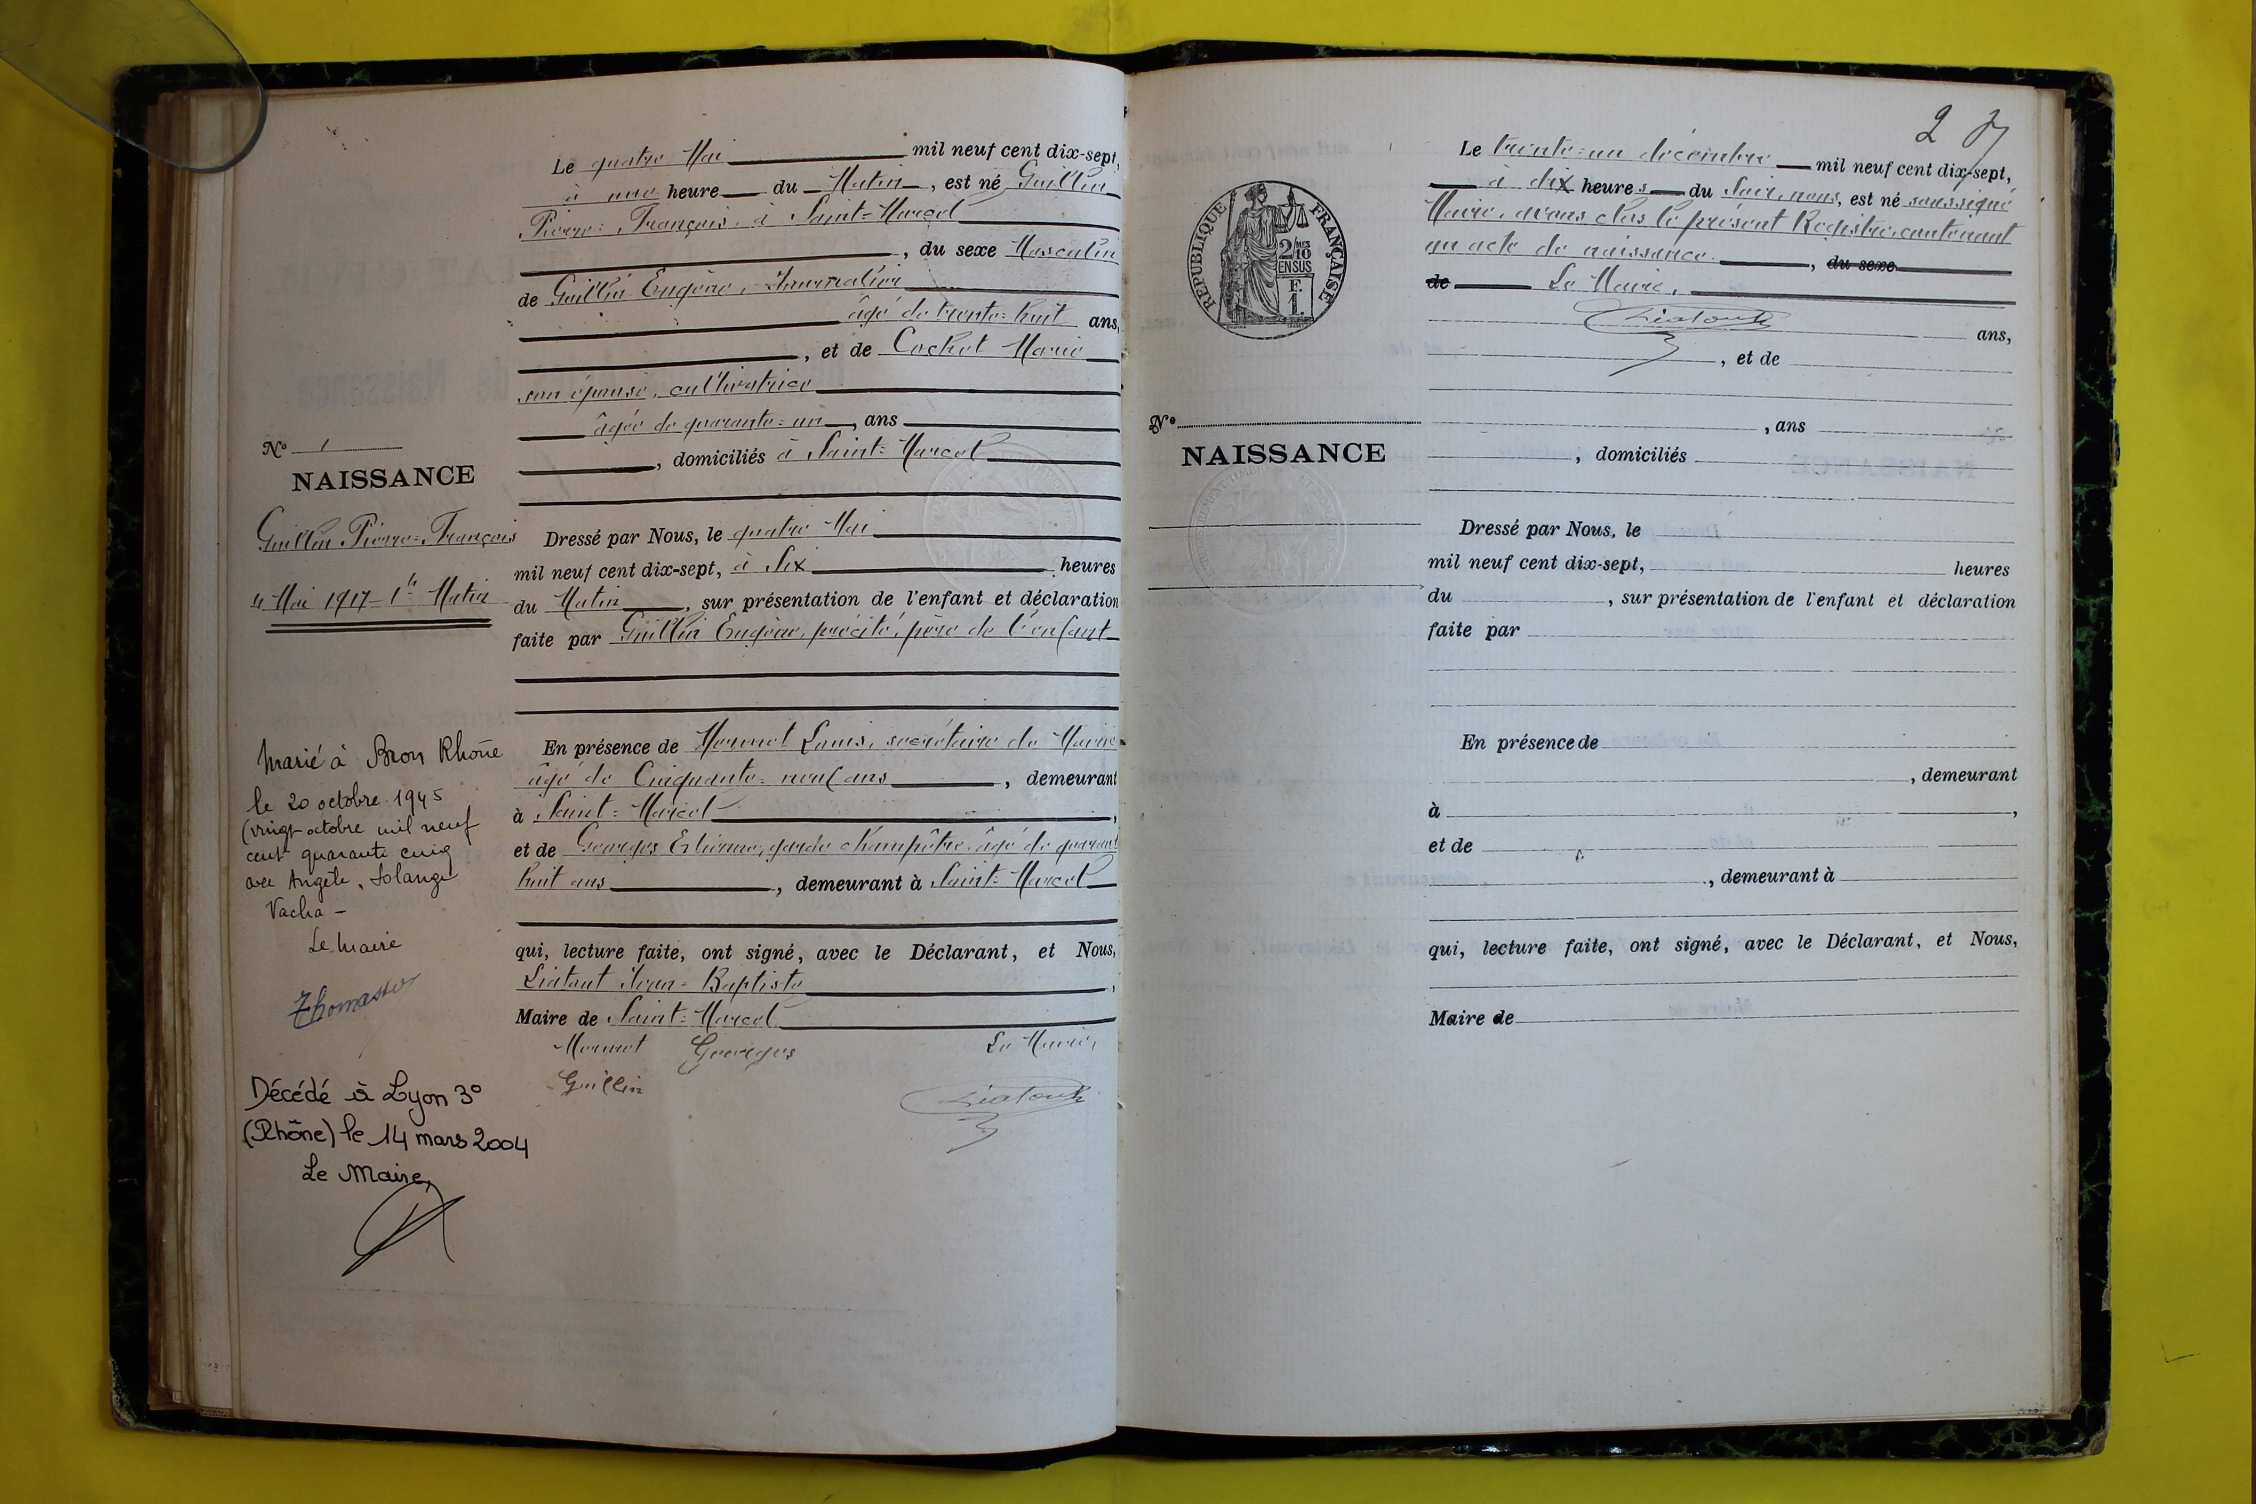 Le quatre Mai mil neuf cent dix-sept,
à une heure du Matin, est né Guillin
Pierre-François, à Saint-Marcel
, du sexe Masculin
de Guillin Eugène, Journalier
âgé de trente-huit ans,
, et de Cochet Marie
son épouse, cultivatrice
âgée de quarante-un, ans
, domiciliés à Saint-Marcel
N° 1
NAISSANCE
Guillin Pierre-François
4 Mai 1917 - 1h Matin
Dressé par Nous, le quatre Mai
mil neuf cent dix-sept, à Six heures
du Matin, sur présentation de l'enfant et déclaration
faite par Guillin Eugène, précité, père de l'enfant
En présence de Monnet Louis, secrétaire de Mairie
âgé de Cinquante-neuf ans, demeurant
à Saint-Marcel,
et de Georges Etienne, garde champêtre, âgé de quarante
huit ans, demeurant à Saint-Marcel
qui, lecture faite, ont signé, avec le Déclarant, et Nous,
Liatout Jean-Baptiste,
Maire de Saint-Marcel
Monnet Georges Le Maire,
Guillin Liatout
Marié à Bron Rhône
le 20 octobre 1945
(vingt octobre mil neuf
cent quarante cinq
avec Angèle, Solange
Vacha -
Le Maire
Décédé à Lyon 3°
(Rhône) le 14 mars 2004
Le Maire,
2
Le trente-un décembre mil neuf cent dix-sept,
à dix heures du Soir, nous, est né soussigné
Maire, avons clos le présent Registre, contenant
un acte de naissance. , du sexe
de Le Maire,
Liatout
ans,
, et de
RÉPUBLIQUE FRANÇAISE
2/10
EN SUS
F.
1.
N°
NAISSANCE
, ans
, domiciliés
Dressé par Nous, le
mil neuf cent dix-sept, heures
du , sur présentation de l'enfant et déclaration
faite par
En présence de
, demeurant
à ,
et de
, demeurant à
qui, lecture faite, ont signé, avec le Déclarant, et Nous,
Maire de